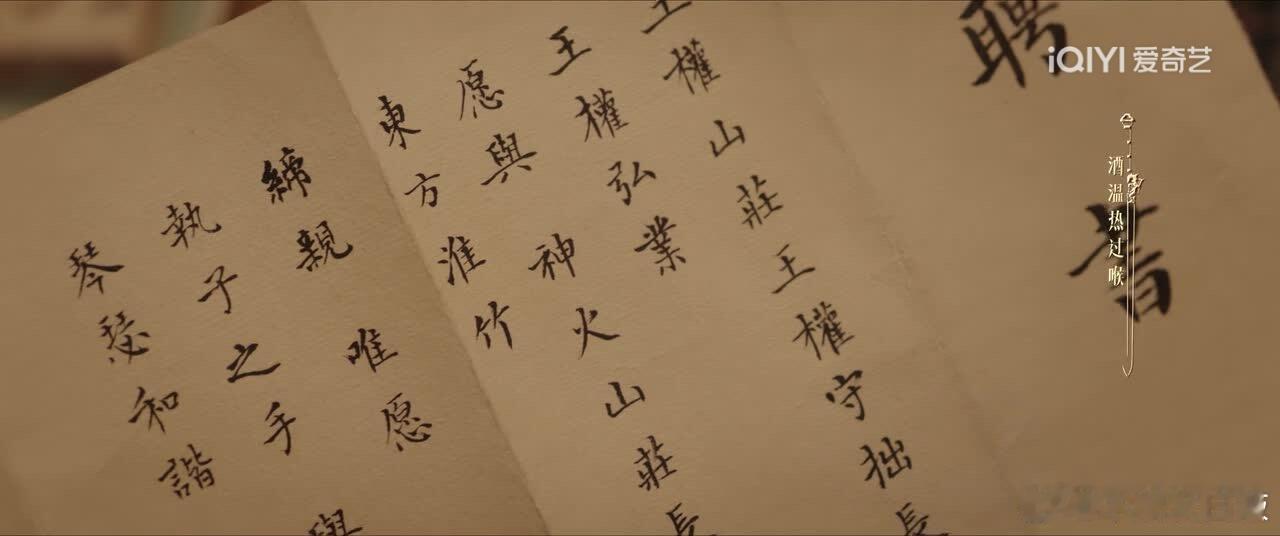 聘書
王權山莊王權守拙長
王權弘業
愿與神火山莊長
東方淮竹
締親唯愿
執子之手與
琴瑟和諧
iQIYI 爱奇艺
酒温热过喉